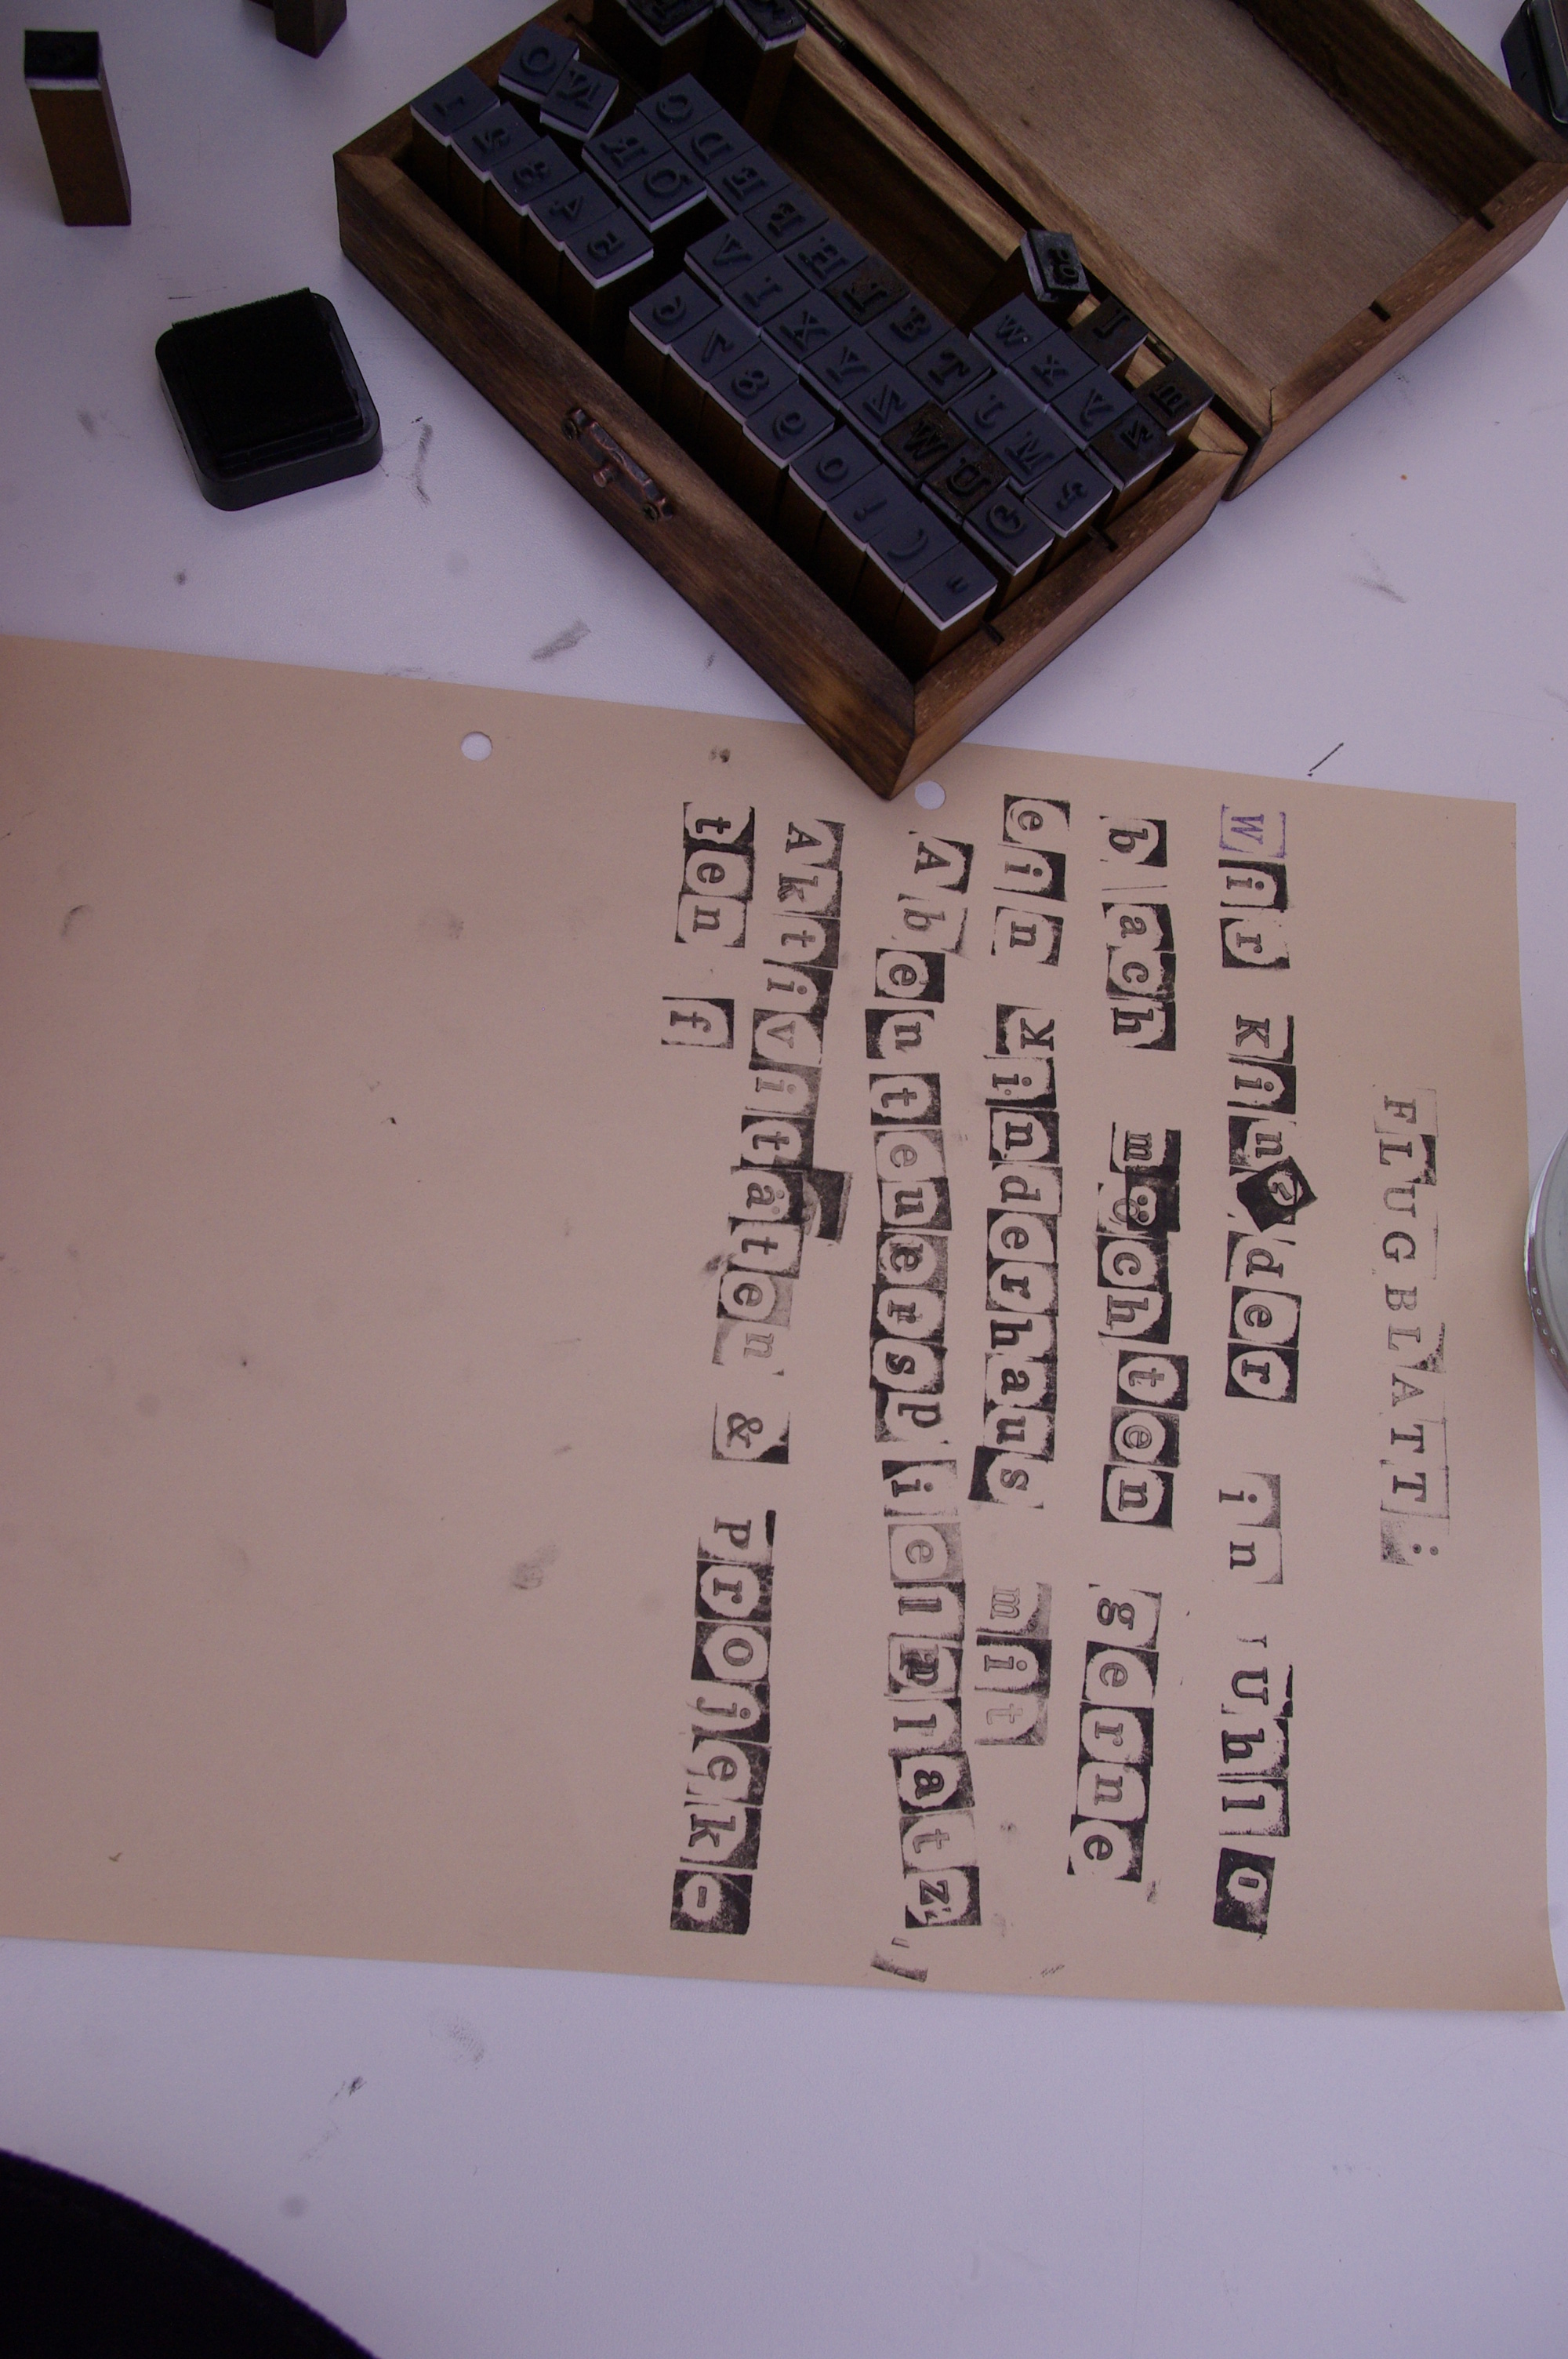 FLUGBLATT:
Wir Kinder in Uhl
bach möchten gerne
ein Kinderhaus mit
Abenteuerspielplatz,
Aktivitäten & Projek-
ten f